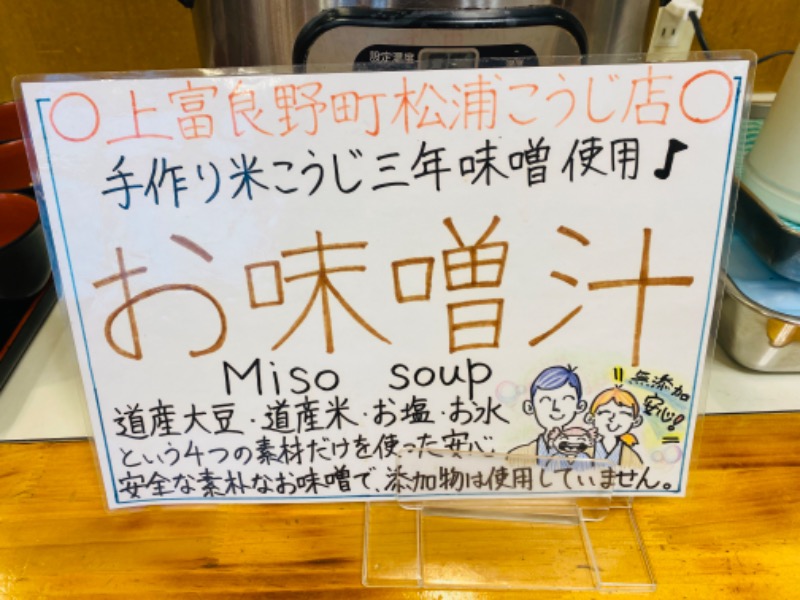 設定温度
〇上富良野町松浦こうじ店〇
手作り米こうじ三年味噌使用♪
お味噌汁
Miso soup
道産大豆・道産米・お塩・お水
という4つの素材だけを使った安心
安全な素朴なお味噌で、添加物は使用していません。
無添加
安心!